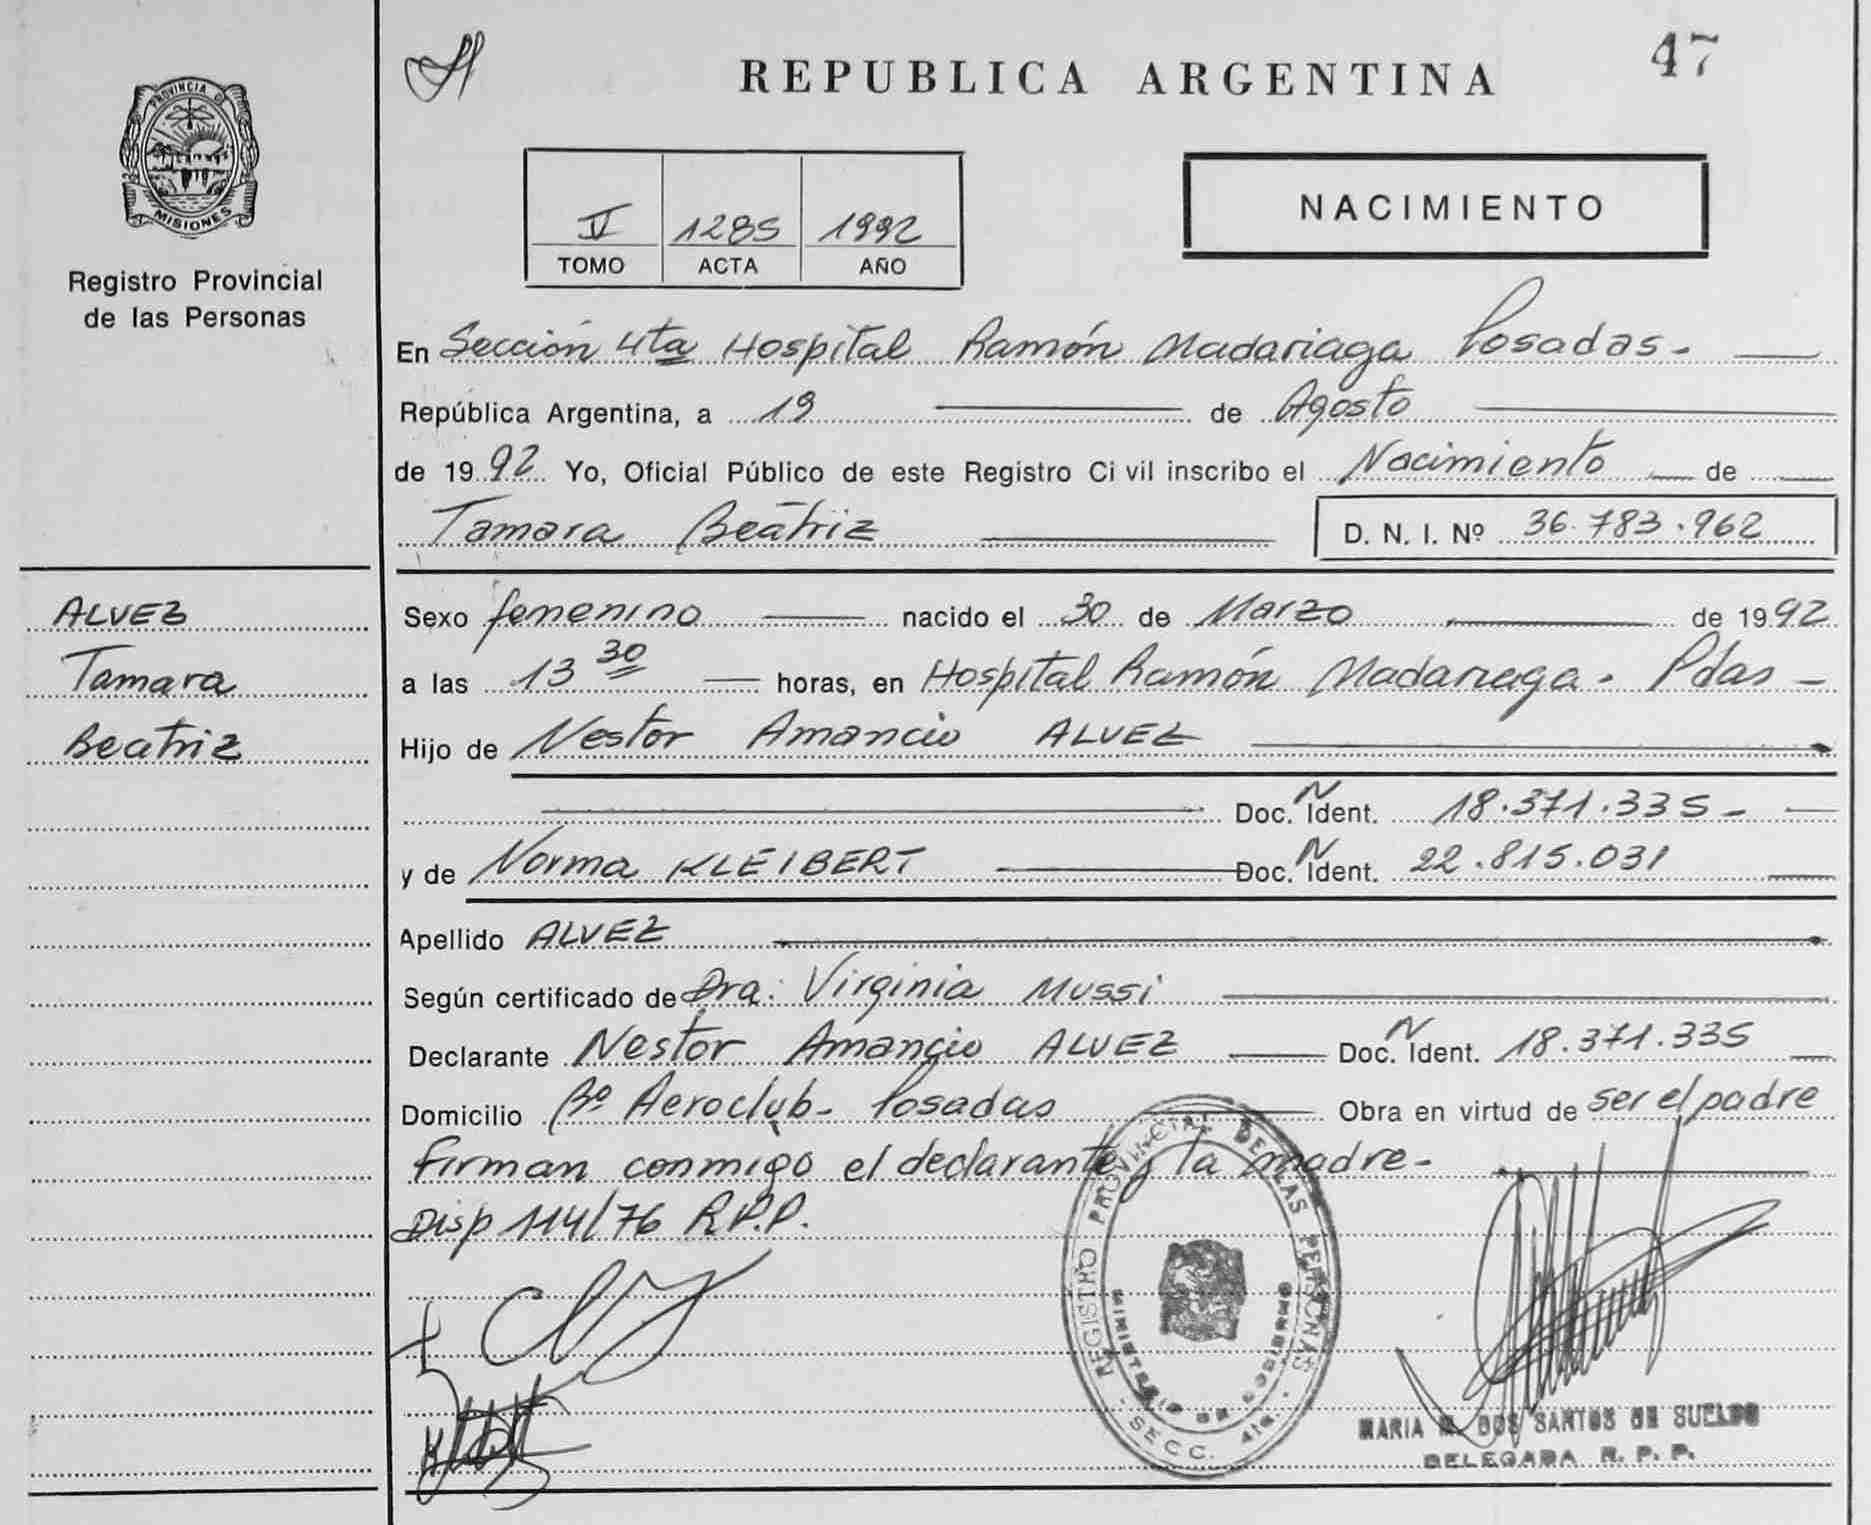 47
REPUBLICA ARGENTINA
PROVINCIA DE
MISIONES
Registro Provincial
de las Personas
V 1285 1992
TOMO ACTA AÑO
NACIMIENTO
En Sección 4ta Hospital Ramón Madariaga Posadas.
República Argentina, a 19 de Agosto
de 1992 Yo, Oficial Público de este Registro Civil inscribo el Nacimiento de
Tamara Beatriz D. N. I. Nº 36.783.962
ALVEZ
Tamara
Beatriz
Sexo femenino nacido el 30 de Marzo de 1992
a las 13 30 horas, en Hospital Ramón Madariaga. Pdas
Hijo de Nestor Amancio ALVEZ
Doc. N Ident. 18.371.335
y de Norma KLEIBERT Doc. N Ident. 22.815.031
Apellido ALVEZ
Según certificado de Dra. Virginia Mussi
Declarante Nestor Amancio ALVEZ Doc. N Ident. 18.371.335
Domicilio Bº Aeroclub - Posadas Obra en virtud de ser el padre
Firman conmigo el declarante y la madre-
Disp 114/76 R.P.P.
REGISTRO PROVINCIAL DE LAS PERSONAS
MINISTERIO DE GOBIERNO
SECC. 4ta.
MARIA M. DOS SANTOS DE SUELDO
DELEGADA R. P. P.